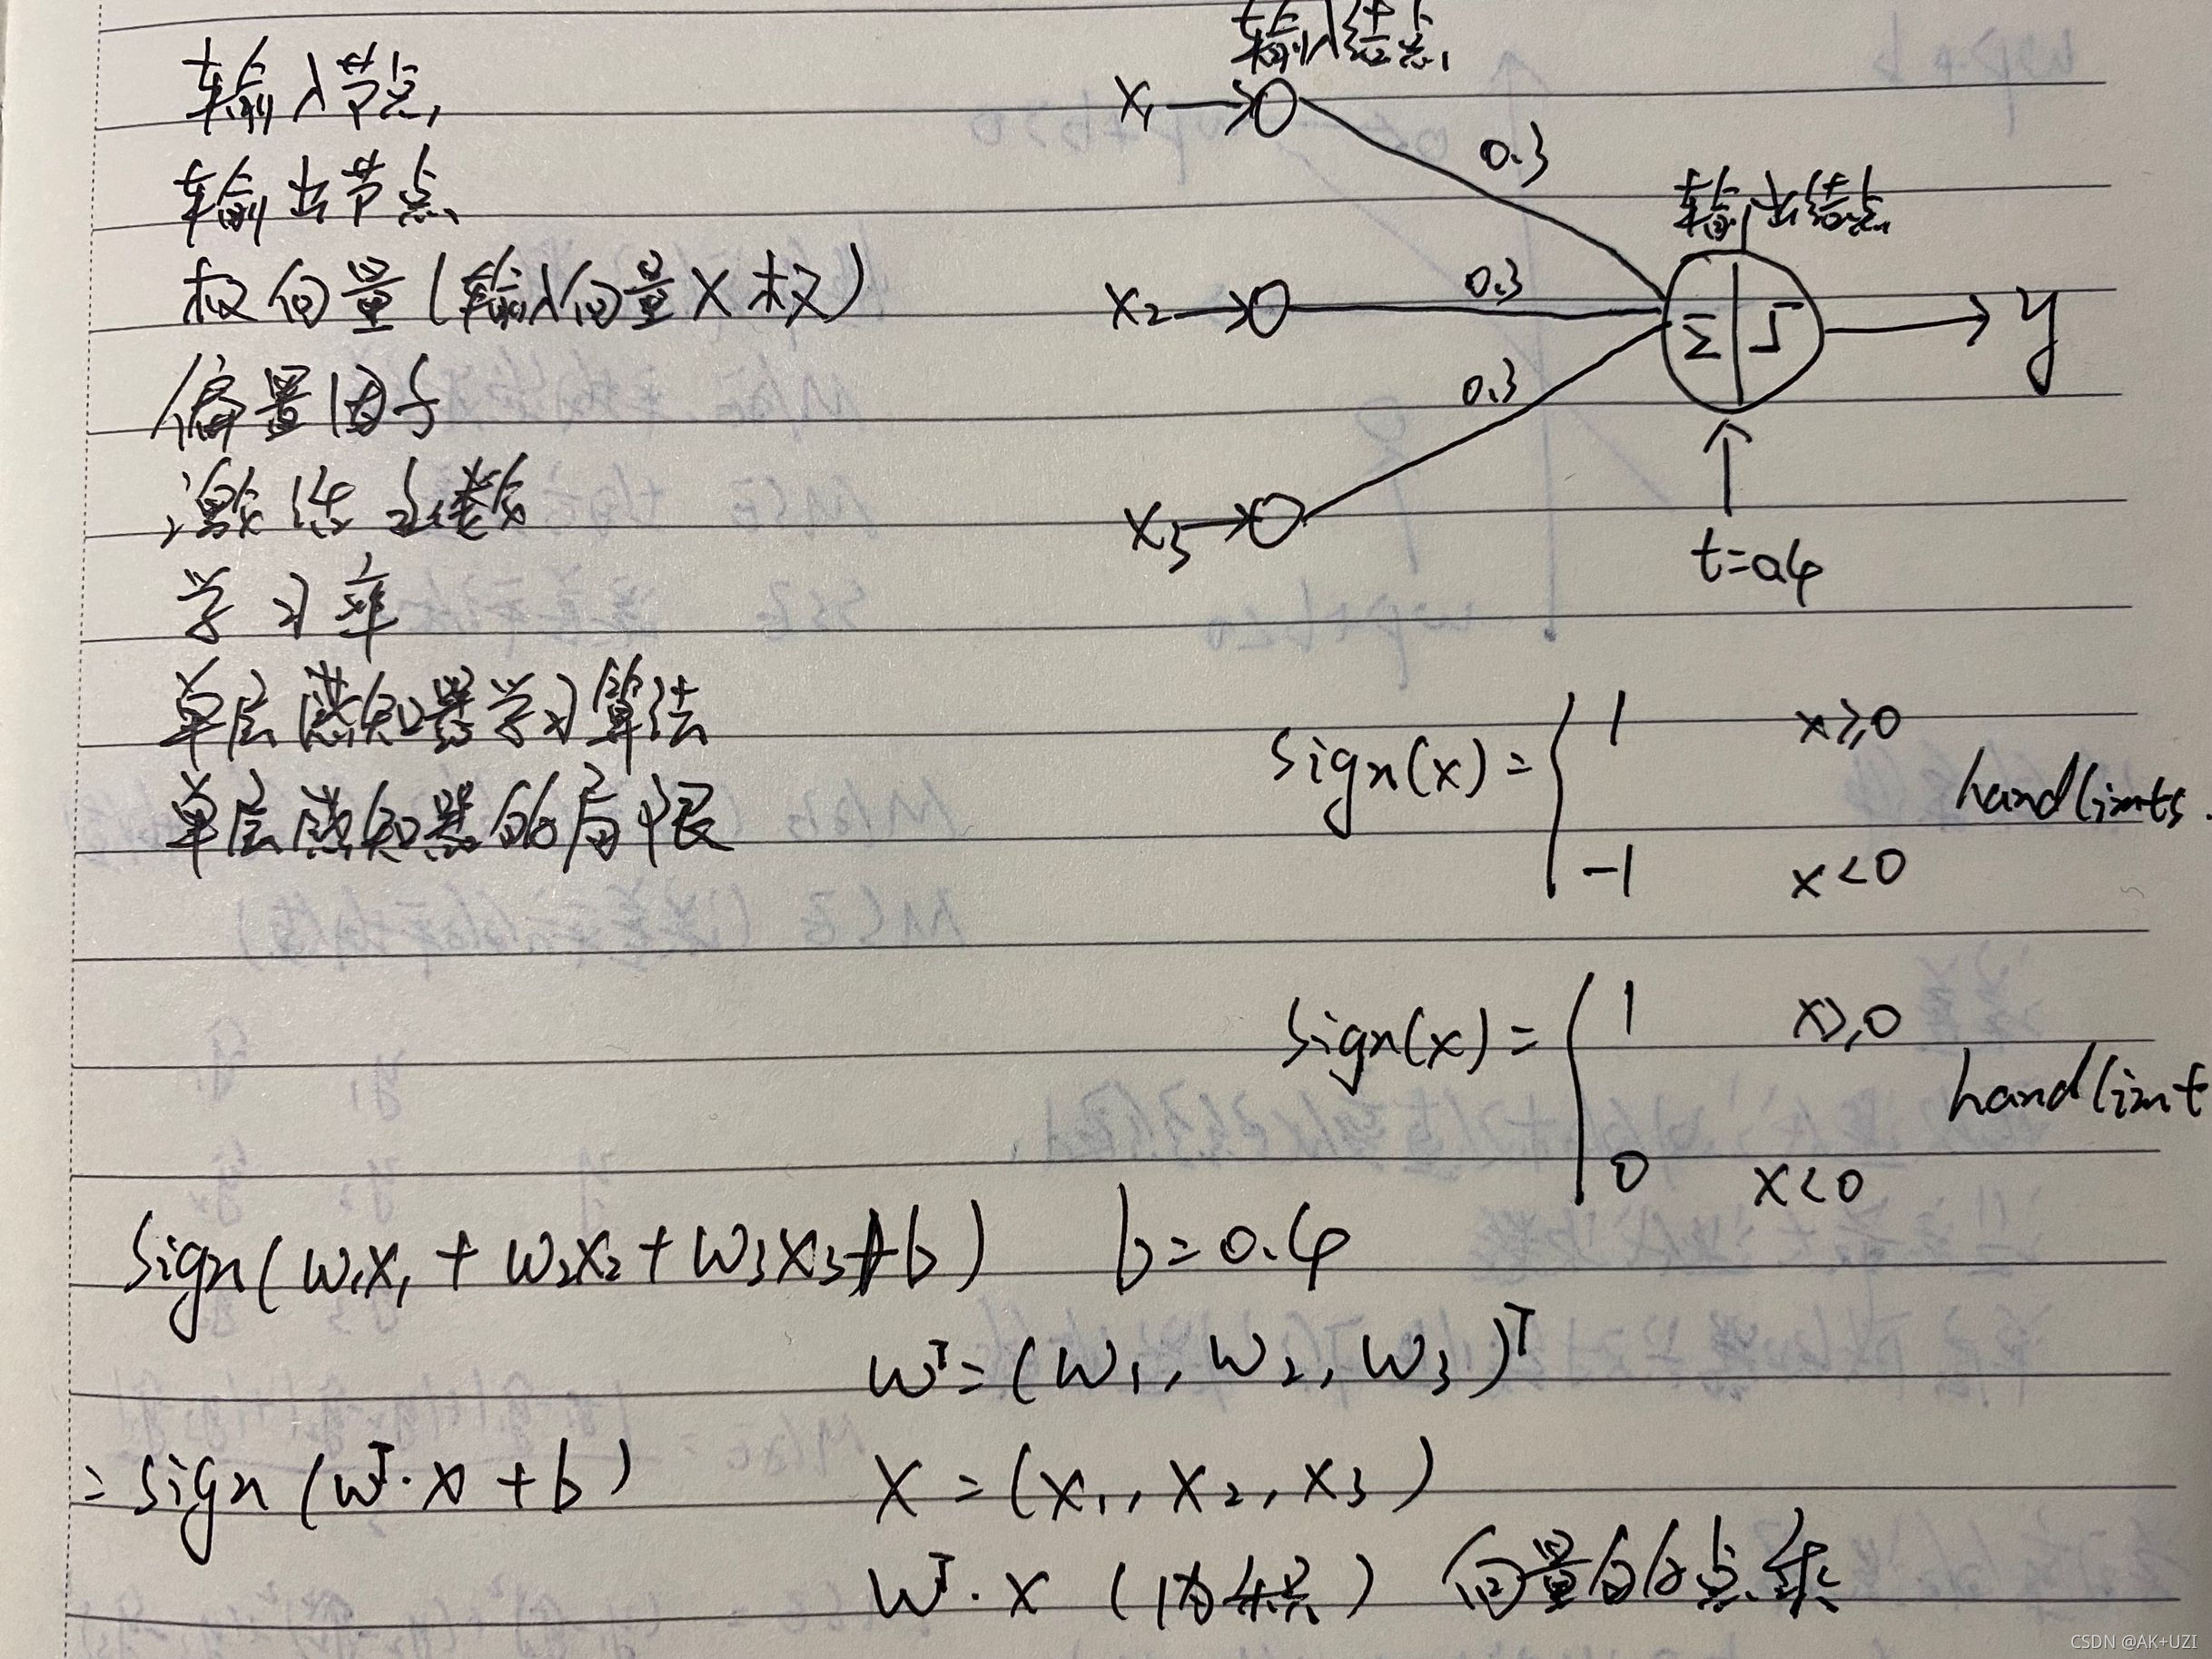 输入节点
输出节点
权向量(输入向量X权)
偏置因子
激活函数
学习率
单层感知器学习算法
单层感知器的局限
输入结点
x₁
0.3
输出结点
x₂
0.3
Σ
y
0.3
x₃
t=0.4
Sign(x) = { 1 x≥0
handlimts.
-1 x<0
Sign(x) = { 1 x≥0
handlimt
0 x<0
Sign(w₁x₁ + w₂x₂ + w₃x₃+b) b=0.4
wᵀ=(w₁, w₂, w₃)ᵀ
=Sign(wᵀ·x+b) X=(x₁, x₂, x₃)
wᵀ·x (内积) 向量的点乘
CSDN @AK+UZI